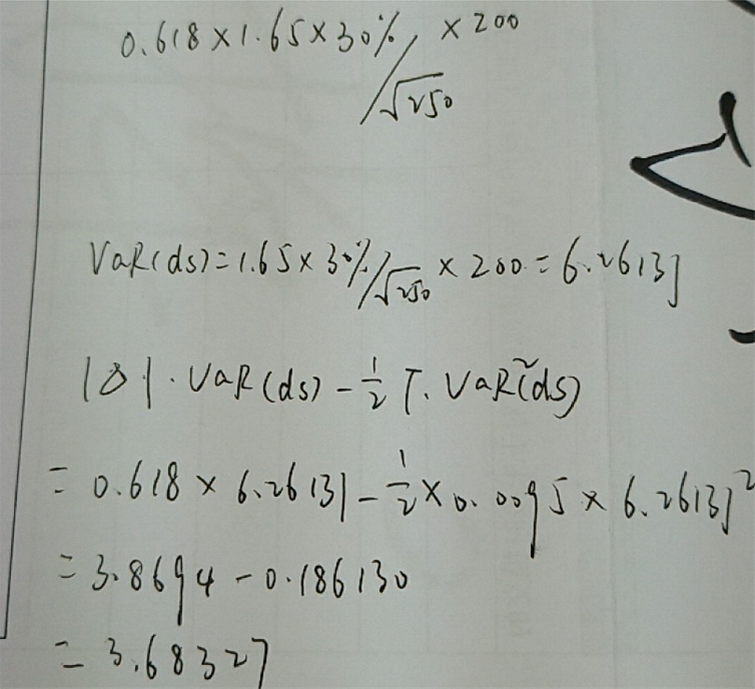 0.618×1.65×30%/√250 ×200
VaR(ds)=1.65×30%/√250 ×200=6.2613
|δ|·VaR(ds)-½Γ·VaR²(ds)
=0.618×6.2613-½×0.0095×6.2613²
=3.8694-0.186130
=3.68327